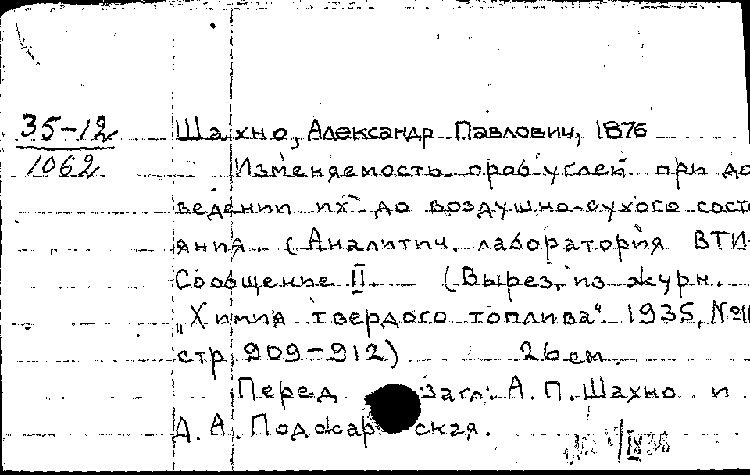 35-12
1062
Шахно, Александр Павлович, 1876
Изменяемость проб углей при до-
ведении их до воздушно-сухого состо-
яния (Аналитич. лаборатория ВТИ
Сообщение II (Вырез. из журн.
„Химия твердого топлива“ 1935, №11
стр. 909-912) 26 см.
Перед загл: А.П. Шахно и
Д. А. Подожарская.